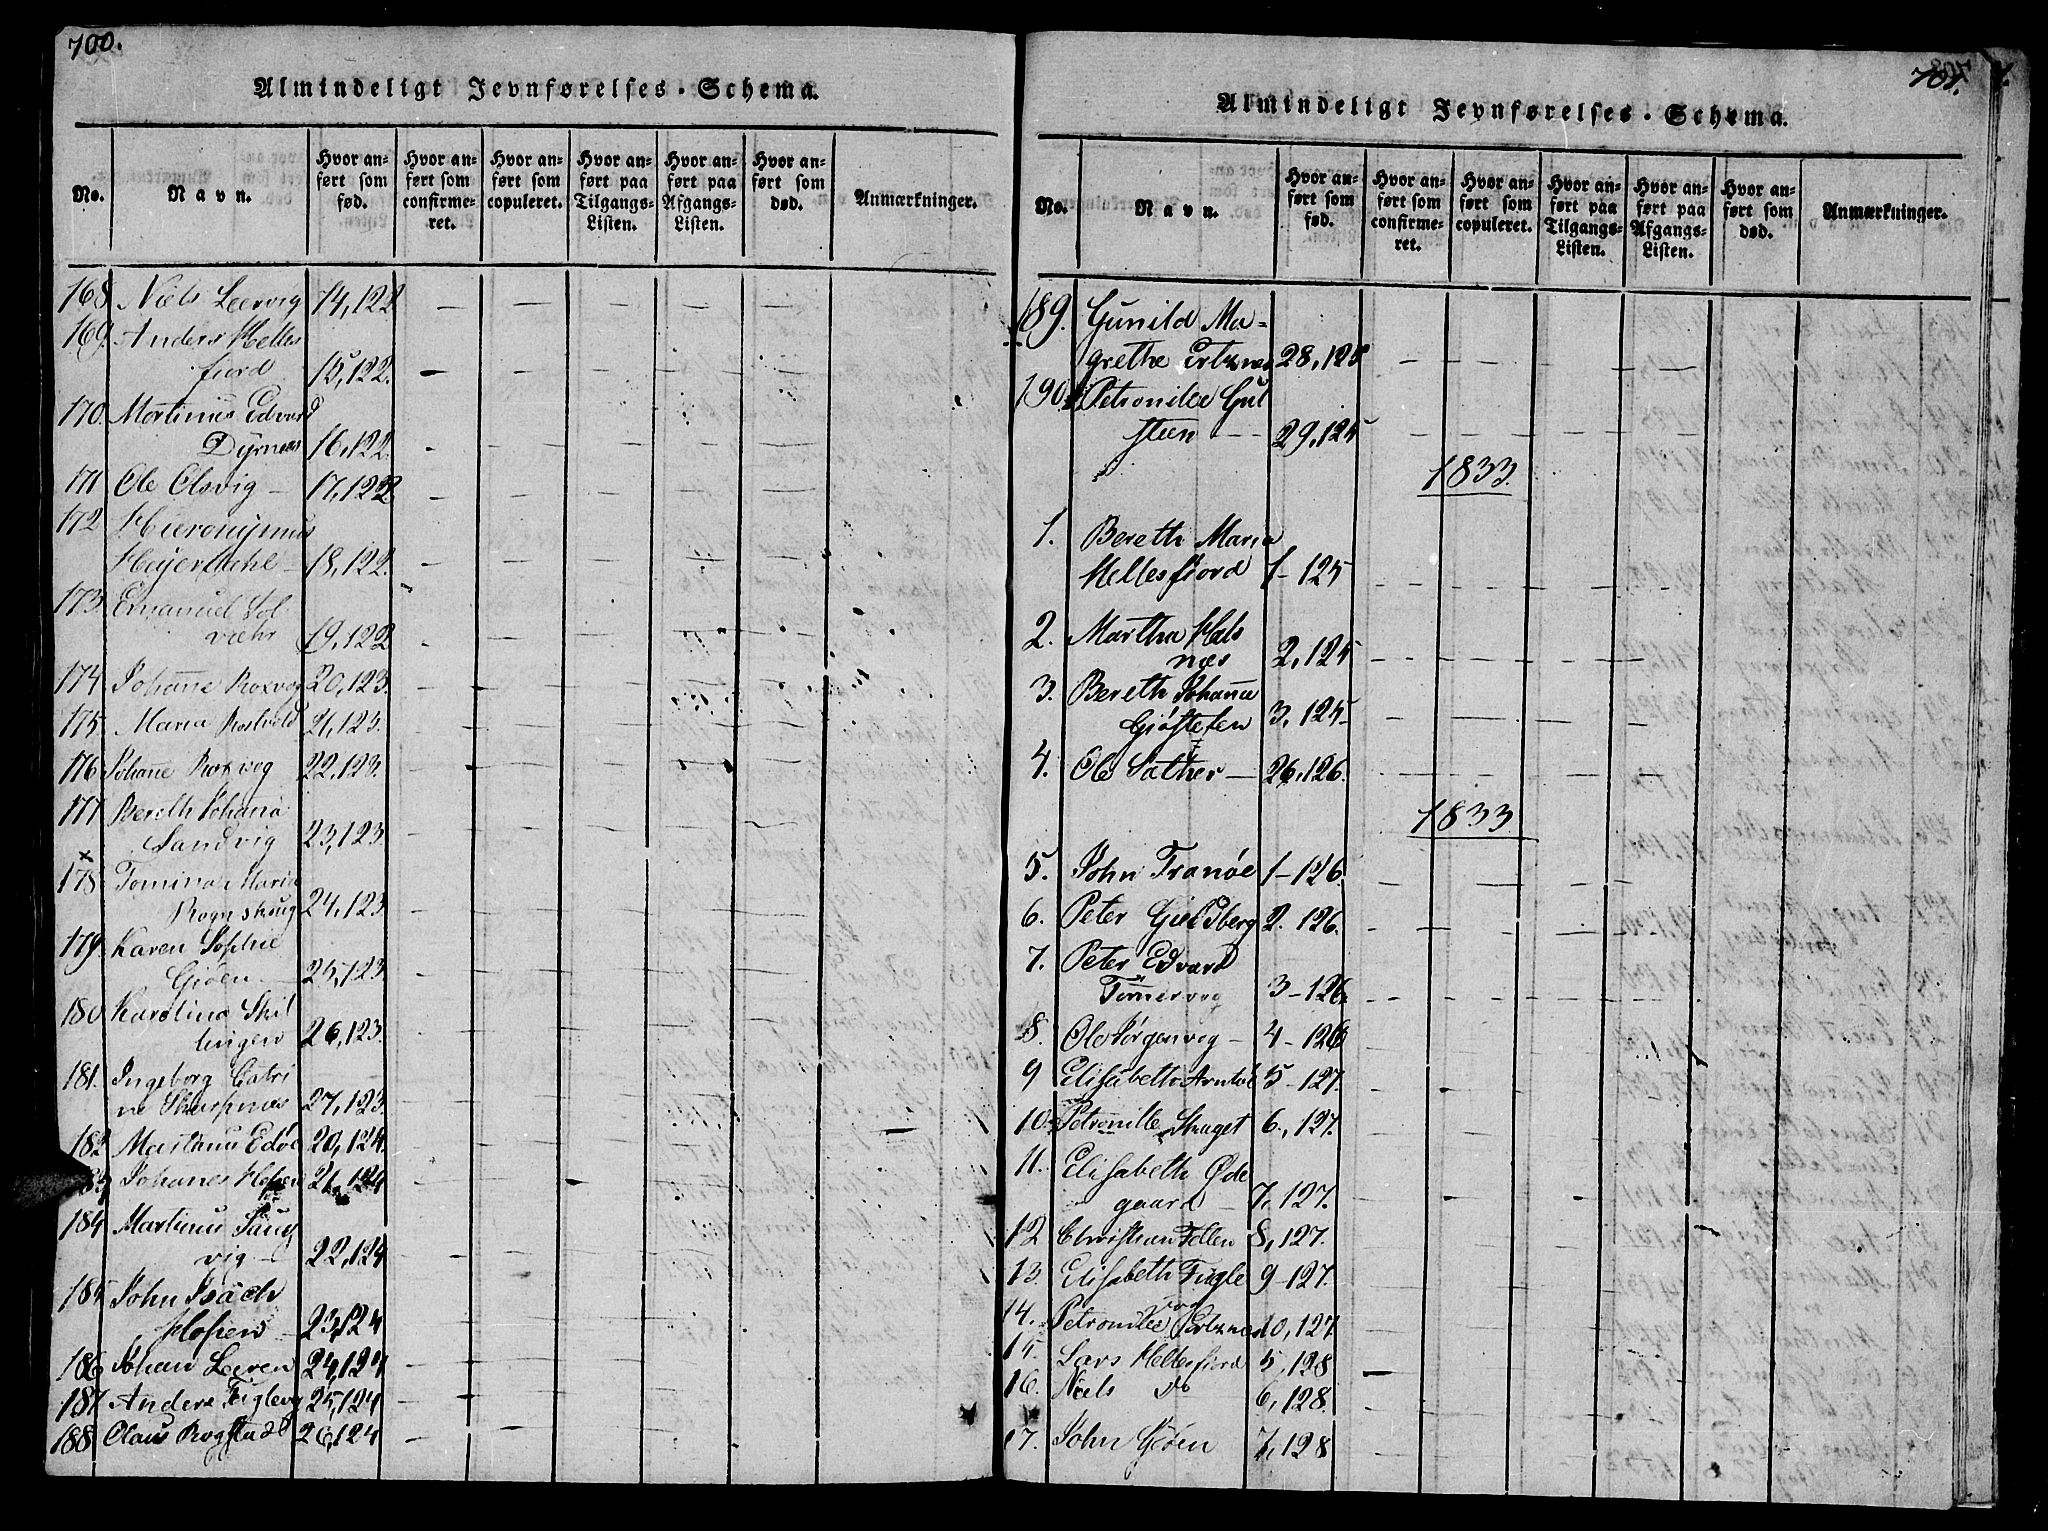 700.
Almindeligt Jevnførelses-Schema.
No. Navn. Hvor anført som fød. Hvor anført som confirmeret. Hvor anført som copuleret. Hvor anført paa Tilgangs-Listen. Hvor anført paa Afgangs-Listen. Hvor anført som død. Anmærkninger.
168 Niels Leervig 14,122
169. Anders Helles
fiord 15,122.
170. Martinus Edvard
Dyrnæs 16,122.
171 Ole Olsvig 17,122
172 Hieronymus
Heyerdahl 18,122.
173. Emanuel Sol
væhr 19,122
174 Johanne Roxvog 20,123.
175. Maria Rostvold 21,123.
176 Johanne Roxvog 22,123.
177 Bereth Johanna
Sandvig 23,123.
178 Tomina Maria
Rognskaug 24,123.
179. Karen Sophie
Giøen 25,123
180 Karolina Skil
lingen 26,123.
181. Ingeborg Catri
ne Skarpnæs 27,123.
182 Marthinus Edøe 20,124.
183 Johanes Hopen 21,124
184 Martinus Saug
vig 22,124
185 John Isach
Hopen 23,124
186 Johan Leeren 24,124
187 Anders Fuglevog 25,124
188 Claus Rogstad 26,124
701.
Almindeligt Jevnførelses-Schema.
No. Navn. Hvor anført som fød. Hvor anført som confirmeret. Hvor anført som copuleret. Hvor anført paa Tilgangs-Listen. Hvor anført paa Afgangs-Listen. Hvor anført som død. Anmærkninger.
189. Gunild Ma-
grethe Ertznes 28,125
190. Petronilee Gul
steen 29,125
1833.
1. Bereth Maria
Hellesfiord 1-125
2. Martha Hals
næs 2,125
3. Bereth Johanna
Giøstelen 3,125
4. Ole Sather 26,126.
1833
5. John Tranøe 1-126
6. Peter Gieldberg 2.126.
7. Peter Edvard
Tømmervog 3-126
8. Ole Jørgenvog 4-126
9 Elisabeth 5-127.
10. Petronille Skaget 6,127.
11. Elisabeth Øde
gaard 7,127.
12 Christian Follen 8,127.
13. Elisabeth Fugle
vog 9-127.
14. Petronilee Ertznes 10,127
15. Lars Hellesfiord 5,128
16. Niels do 6,128.
17. John Giøen 7,128